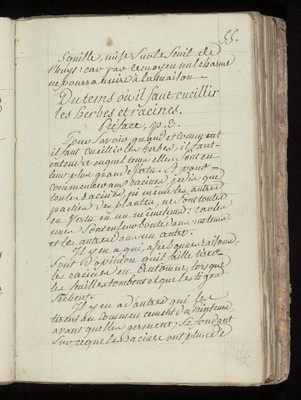 55.
Squille, mise sur le seuil de
l'huys: car par ce moyen nul charme
ne pourra nuire à la maison.
Du tems où il faut cueillir
les herbes et racines.
Préface, p. 3.
Pour savoir quand et comment
il faut cueillir les herbes, il faut
entendre en quel tems elles sont en
leur plus grande vertu. Et pour
commencer aux racines, je dis que
toutes racines, ni même les autres
parties des plantes, ne sont toutes
en vertu en un même tems: car les
unes sont en leur bonté dans un tems
et les autres dans un autre.
Il y en a qui, avec bonne raison
sont d'opinion qu'il faille tirer
les racines en automne, lorsque
les feuilles tombent et que les tiges
sèchent.
Il y en a d'autres qui les
tirent au commencement du printems,
avant qu'elles germent, se fondant
sur ce que les racines ont plus de